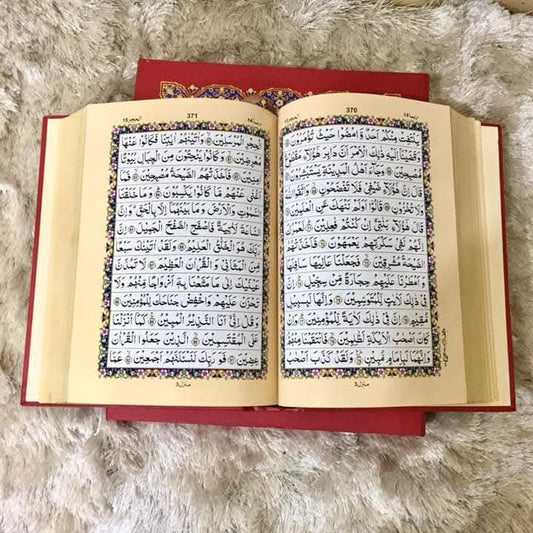 ربما ١٤
370
الحجر 15
يَلْتَفِتْ مِنْكُمْ اَحَدٌ وَّامْضُوْا حَيْثُ تُؤْمَرُوْنَ
وَقَضَيْنَاۤ اِلَيْهِ ذٰلِكَ الْاَمْرَ اَنَّ دَابِرَ هٰۤؤُلَآءِ مَقْطُوْعٌ
مُّصْبِحِيْنَ وَجَآءَ اَهْلُ الْمَدِيْنَةِ يَسْتَبْشِرُوْنَ
قَالَ اِنَّ هٰۤؤُلَآءِ ضَيْفِيْ فَلَا تَفْضَحُوْنِ وَاتَّقُوا اللّٰهَ
وَلَا تُخْزُوْنِ قَالُوْۤا اَوَلَمْ نَنْهَكَ عَنِ الْعٰلَمِيْنَ
قَالَ هٰۤؤُلَآءِ بَنٰتِيْۤ اِنْ كُنْتُمْ فٰعِلِيْنَ لَعَمْرُكَ
اِنَّهُمْ لَفِيْ سَكْرَتِهِمْ يَعْمَهُوْنَ فَاَخَذَتْهُمُ
الصَّيْحَةُ مُشْرِقِيْنَ فَجَعَلْنَا عَالِيَهَا سَافِلَهَا
وَاَمْطَرْنَا عَلَيْهِمْ حِجَارَةً مِّنْ سِجِّيْلٍ اِنَّ
فِيْ ذٰلِكَ لَاٰيٰتٍ لِّلْمُتَوَسِّمِيْنَ وَاِنَّهَا لَبِسَبِيْلٍ
مُّقِيْمٍ اِنَّ فِيْ ذٰلِكَ لَاٰيَةً لِّلْمُؤْمِنِيْنَ وَاِنْ
كَانَ اَصْحٰبُ الْاَيْكَةِ لَظٰلِمِيْنَ فَانْتَقَمْنَا مِنْهُمْ
وَاِنَّهُمَا لَبِاِمَامٍ مُّبِيْنٍ وَلَقَدْ كَذَّبَ اَصْحٰبُ
منزل ٣
ربما ١٤
371
الحجر 15
الْحِجْرِ الْمُرْسَلِيْنَ وَاٰتَيْنٰهُمْ اٰيٰتِنَا فَكَانُوْا عَنْهَا
مُعْرِضِيْنَ وَكَانُوْا يَنْحِتُوْنَ مِنَ الْجِبَالِ بُيُوْتًا
اٰمِنِيْنَ فَاَخَذَتْهُمُ الصَّيْحَةُ مُصْبِحِيْنَ فَمَاۤ
اَغْنٰى عَنْهُمْ مَّا كَانُوْا يَكْسِبُوْنَ وَمَا خَلَقْنَا
السَّمٰوٰتِ وَالْاَرْضَ وَمَا بَيْنَهُمَاۤ اِلَّا بِالْحَقِّ وَاِنَّ
السَّاعَةَ لَاٰتِيَةٌ فَاصْفَحِ الصَّفْحَ الْجَمِيْلَ اِنَّ
رَبَّكَ هُوَ الْخَلّٰقُ الْعَلِيْمُ وَلَقَدْ اٰتَيْنٰكَ سَبْعًا
مِّنَ الْمَثَانِيْ وَالْقُرْاٰنَ الْعَظِيْمَ لَا تَمُدَّنَّ
عَيْنَيْكَ اِلٰى مَا مَتَّعْنَا بِهٖۤ اَزْوَاجًا مِّنْهُمْ وَلَا
تَحْزَنْ عَلَيْهِمْ وَاخْفِضْ جَنَاحَكَ لِلْمُؤْمِنِيْنَ
وَقُلْ اِنِّيْۤ اَنَا النَّذِيْرُ الْمُبِيْنُ كَمَاۤ اَنْزَلْنَا
عَلَى الْمُقْتَسِمِيْنَ الَّذِيْنَ جَعَلُوا الْقُرْاٰنَ
عِضِيْنَ فَوَرَبِّكَ لَنَسْـَٔلَنَّهُمْ اَجْمَعِيْنَ عَمَّا
منزل ٣